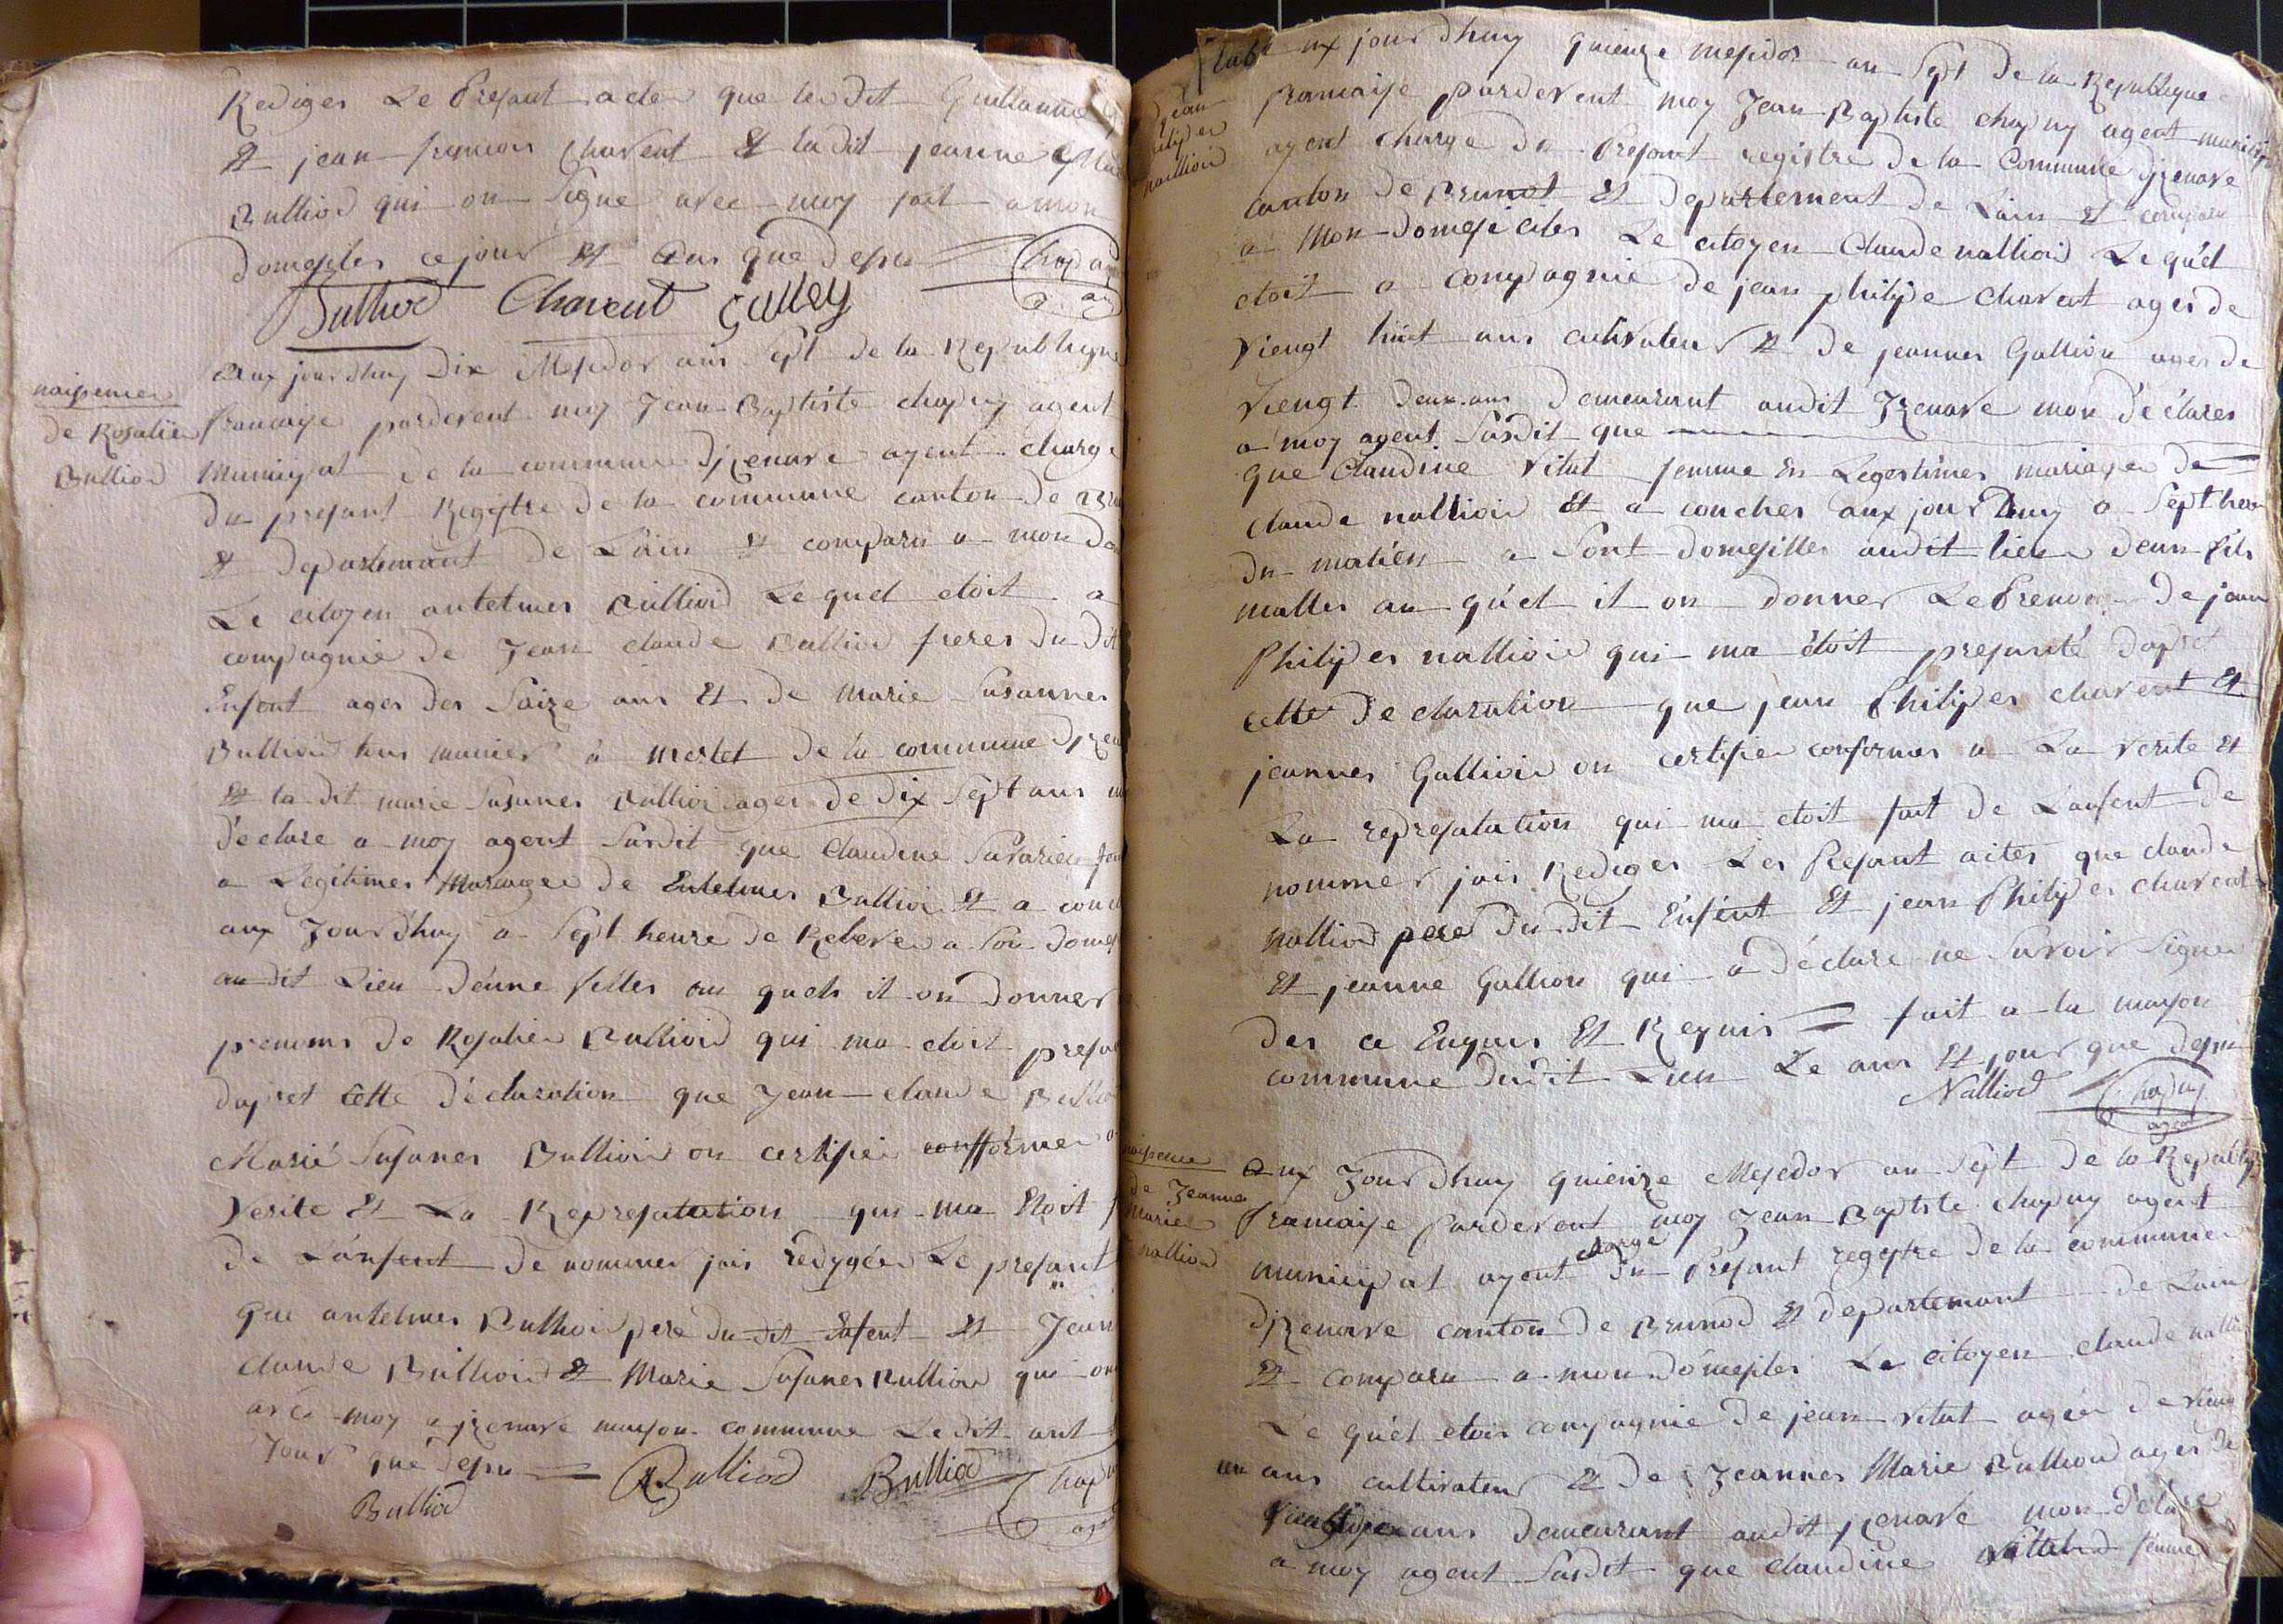 Rediger Le Presant acte que le dit Guillaume
Et jean francois Charent Et la dit jeanne
Bulliod qui on Signe avec moy fait a mon
domesiles ce jour Et ans que depu
Chap
Bulliod Charent Gulley
naissences
de Rosalie
Bulliod
aux jourdhuy Dix Mesidor ans Sept de la Republique
francaise pardevent moy Jean Baptiste chapuy agent
Municipal de la commune djzenave agent charge
du presant Registre de la commune canton de
Et departemant de L'ain Et comparu a mon
Le citoyen antelmes Bulliod Le quel etoit a
compagnie de Jean claude Bulliod freres du dit
Enfent ages des Saize ans Et de Marie Susannes
Bulliod munier a mertet de la commune
Et la dit marie Susanes Bulliod ages de dix Sept ans
declare a moy agent Susdit que Claudine Savarien
a Legitimes Mariages de Entelmes Bulliod Et a
aux Jourdhuy a Sept heure de Relevee a Son
au dit Lieu deune filles au quels il on donner
prenoms de Rosalies Bulliod qui ma etoit
dapret Cette declaration que Jean claude
Marie Susanes Bulliod on certifier confformes
Verite Et La Represatation qui ma Etoit
de L'anfent de nommes jais redygées Le presant
que antelmes Bulliod pere du dit Enfent Et Jean
claude Bulliod Et Marie Susanes Bulliod qui
avec moy a jzenave maison commune Le dit ant
Jour que depu Bulliod Bulliod
Bulliod
Chap
Jean
nallioud
aux jour dhuy quienze mesidor an Sept de la Republique
francaise pardevent moy Jean Baptiste chapuy agent
agent charge du Presant registre de la Commune djzenave
canton de Brunot Et departement de Lain Et
a Mon domesiciles Le citoyen Claude nalliod Le quel
etoit a compagnie de jean philipe charent ages de
Viengt huit ans cultivateur Et de jeannes Gallion ages de
Viengt deux ans demeurant audit Jzenave mon declares
a moy agent Susdit que
que Claudine Vitat femme En Legestimes mariages de
claude nalliod Et a coucher aux jour dhuy a Sept
du matien a Sont domesilles audit lieu deun fils
malles au quel il on donner Le Prenom de jean
Philipes nalliod qui ma etoit presanté dapret
cette declaration que jean Philipes charent Et
jeannes Galliod on certifier conformes a La verite Et
La represatation qui ma etoit fait de Lanfent de
nommer jais Rediges Les Presant actes que claude
nalliod pere du dit Enfent Et jean Philipes charent
Et jeanne Gallion qui a declare ne Savoir Signer
des ce Enquis Et Requis fait a la mayson
commune du dit Lieu Le ans Et jour que depu
Nalliod Chapuy
agent
naissence
de Jeanne
Marie
nalliod
aux Jour dhuy quienze Mesidor an Sept de la
francaise Pardevent moy Jean Baptiste chapuy agent
municipal agent charge du Presant registre de la commune
djzenave canton de Brunod Et departemant de Lain
Et comparu a mon domesiles Le citoyen claude
Le quel etois compagnie de jean vitat agée de
un ans cultivateur Et de Jeannes Marie Bulliod ages de
ans demeurant audit jzenave mon declare
a moy agent Susdit que claudine femme